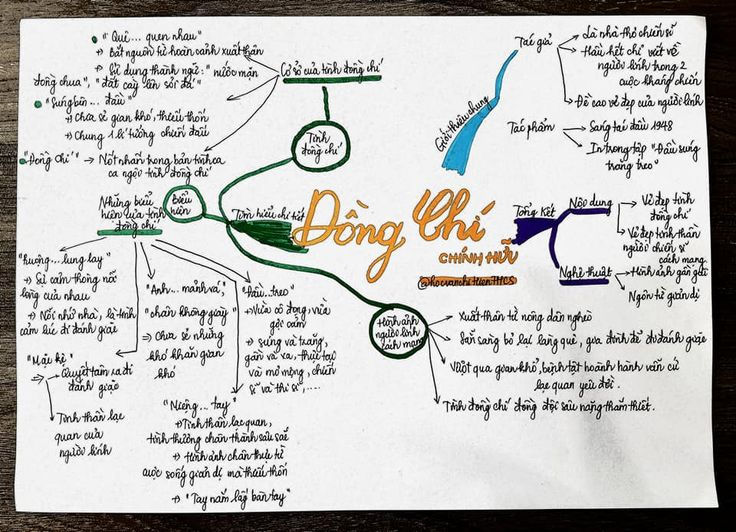 Đồng Chí
CHÍNH HỮU
@hocvanchiHienTHCS
Giới thiệu chung
Tác giả
Là nhà thơ chiến sĩ
Hầu hết chỉ viết về
người lính trong 2
cuộc kháng chiến
Đề cao vẻ đẹp của người lính
Tác phẩm
Sáng tác đầu 1948
In trong tập "Đầu súng
trăng treo"
Tổng kết
Nội dung
Vẻ đẹp tình
đồng chí
Vẻ đẹp tinh thần
người chiến sĩ
cách mạng
Nghệ thuật
Hình ảnh gần gũi
Ngôn từ giản dị
Tìm hiểu chi tiết
Tình
đồng chí
Cơ sở của tình đồng chí
"Quê... quen nhau"
Bắt nguồn từ hoàn cảnh xuất thân
Sử dụng thành ngữ: "nước mặn
đồng chua", "đất cày lên sỏi đá"
"Súng bên... đầu"
Chia sẻ gian khó, thiếu thốn
Chung 1 lí tưởng chiến đấu
"Đồng Chí" → Nốt nhấn trong bản tình ca
ca ngợi tình đồng chí
Biểu
hiện
Những biểu
hiện của tình
đồng chí
"Ruộng... lung lay"
→ Sự cảm thông nỗi
lòng của nhau
→ Nỗi nhớ nhà, là tình
cảm lúc đi đánh giặc
"Mặc kệ"
Quyết tâm ra đi
đánh giặc
Tinh thần lạc
quan của
người lính
"Anh... mảnh vá,"
"chân không giày"
→ Chia sẻ những
khó khăn gian
khó
"Miệng... tay"
→ Tinh thần lạc quan,
tình thương chân thành sâu sắc
→ Hình ảnh chân thực từ
cuộc sống giản dị mà thiếu thốn
→ "Tay nắm lấy bàn tay"
"Đầu... treo"
→ Vừa cô đọng, vừa
gợi cảm
→ súng và trăng,
gần và xa, thực tại
và mơ mộng, chiến
sĩ và thi sĩ,....
Hình ảnh
người lính
cách mạng
Xuất thân từ nông dân nghèo
Sẵn sàng bỏ lại làng quê, gia đình để đi đánh giặc
Vượt qua gian khổ, bệnh tật hoành hành vẫn cứ
lạc quan yêu đời.
Tình đồng chí đồng đội sâu nặng thắm thiết.